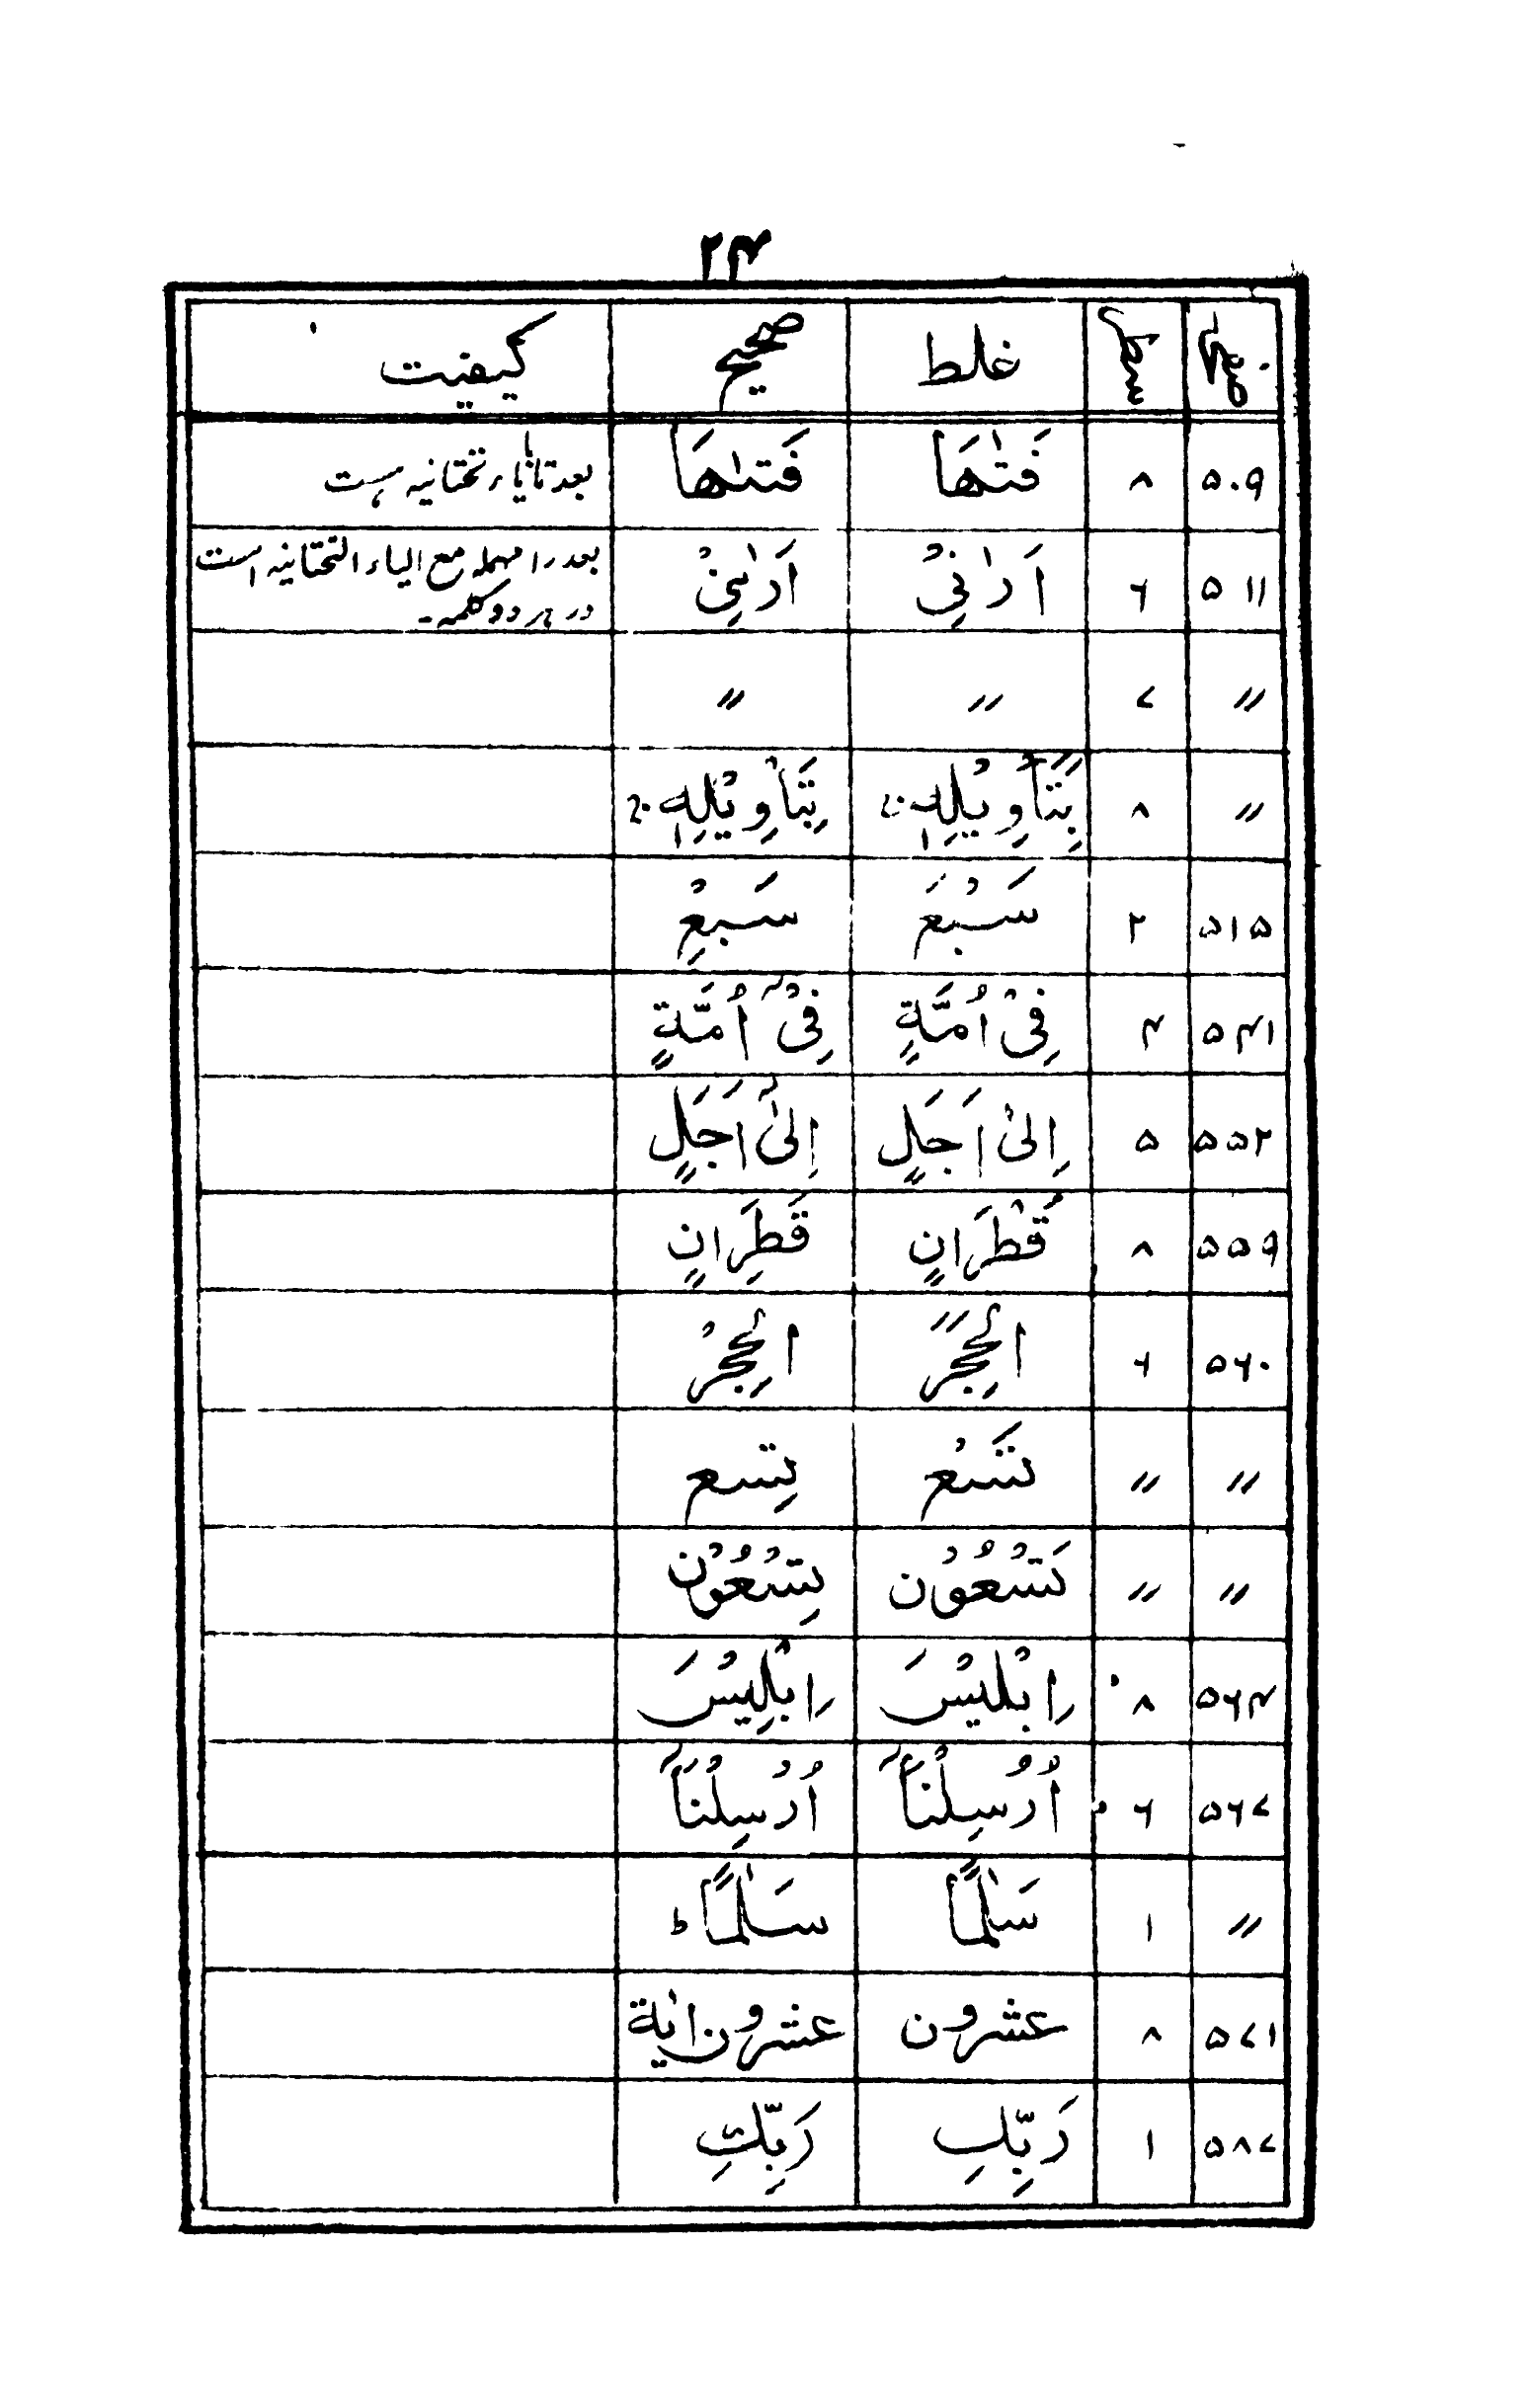 ۲۴
صفحہ سطر غلط صحیح کیفیت
۵۰۹ ۸ فَتٰهَا فَتىٰهَا بعد تا یاء تحتانیہ ہست
۵۱۱ ۶ اَرٰنِیْ اَرىٰنِیْ بعد را مہملہ مع الیاء التحتانیہ است
در ہر دو کلمہ۔
〃 ۷ 〃 〃
〃 ۸ بِتَاْوِیْلِهٖ بِتَاْوِیْلِهٖ
۵۱۵ ۲ سَبْعَ سَبْعِ
۵۴۱ ۴ فِیْ اُمَّةٍ فِیْۤ اُمَّةٍ
۵۵۲ ۵ اِلىٰ اَجَلٍ اِلىٰۤ اَجَلٍ
۵۵۹ ۸ قَطْرَانٍ قَطِرَانٍ
۵۶۰ ۶ الْحِجْرً الْحِجْر
〃 〃 تَسْع تِسع
〃 〃 تَسْعُوْن تِسْعُوْن
۵۶۴ ۸ اِبْلیْسَ اِبْلِیْسَ
۵۶۷ ۶ اُرْسِلْنَاۤ اُرْسِلْنَاۤ
〃 ۱ سَلٰمًا سَلٰمًا ط
۵۷۱ ۸ عشرون عشرون اٰیة
۵۸۷ ۱ رَبِّكِ رَبِّكِ